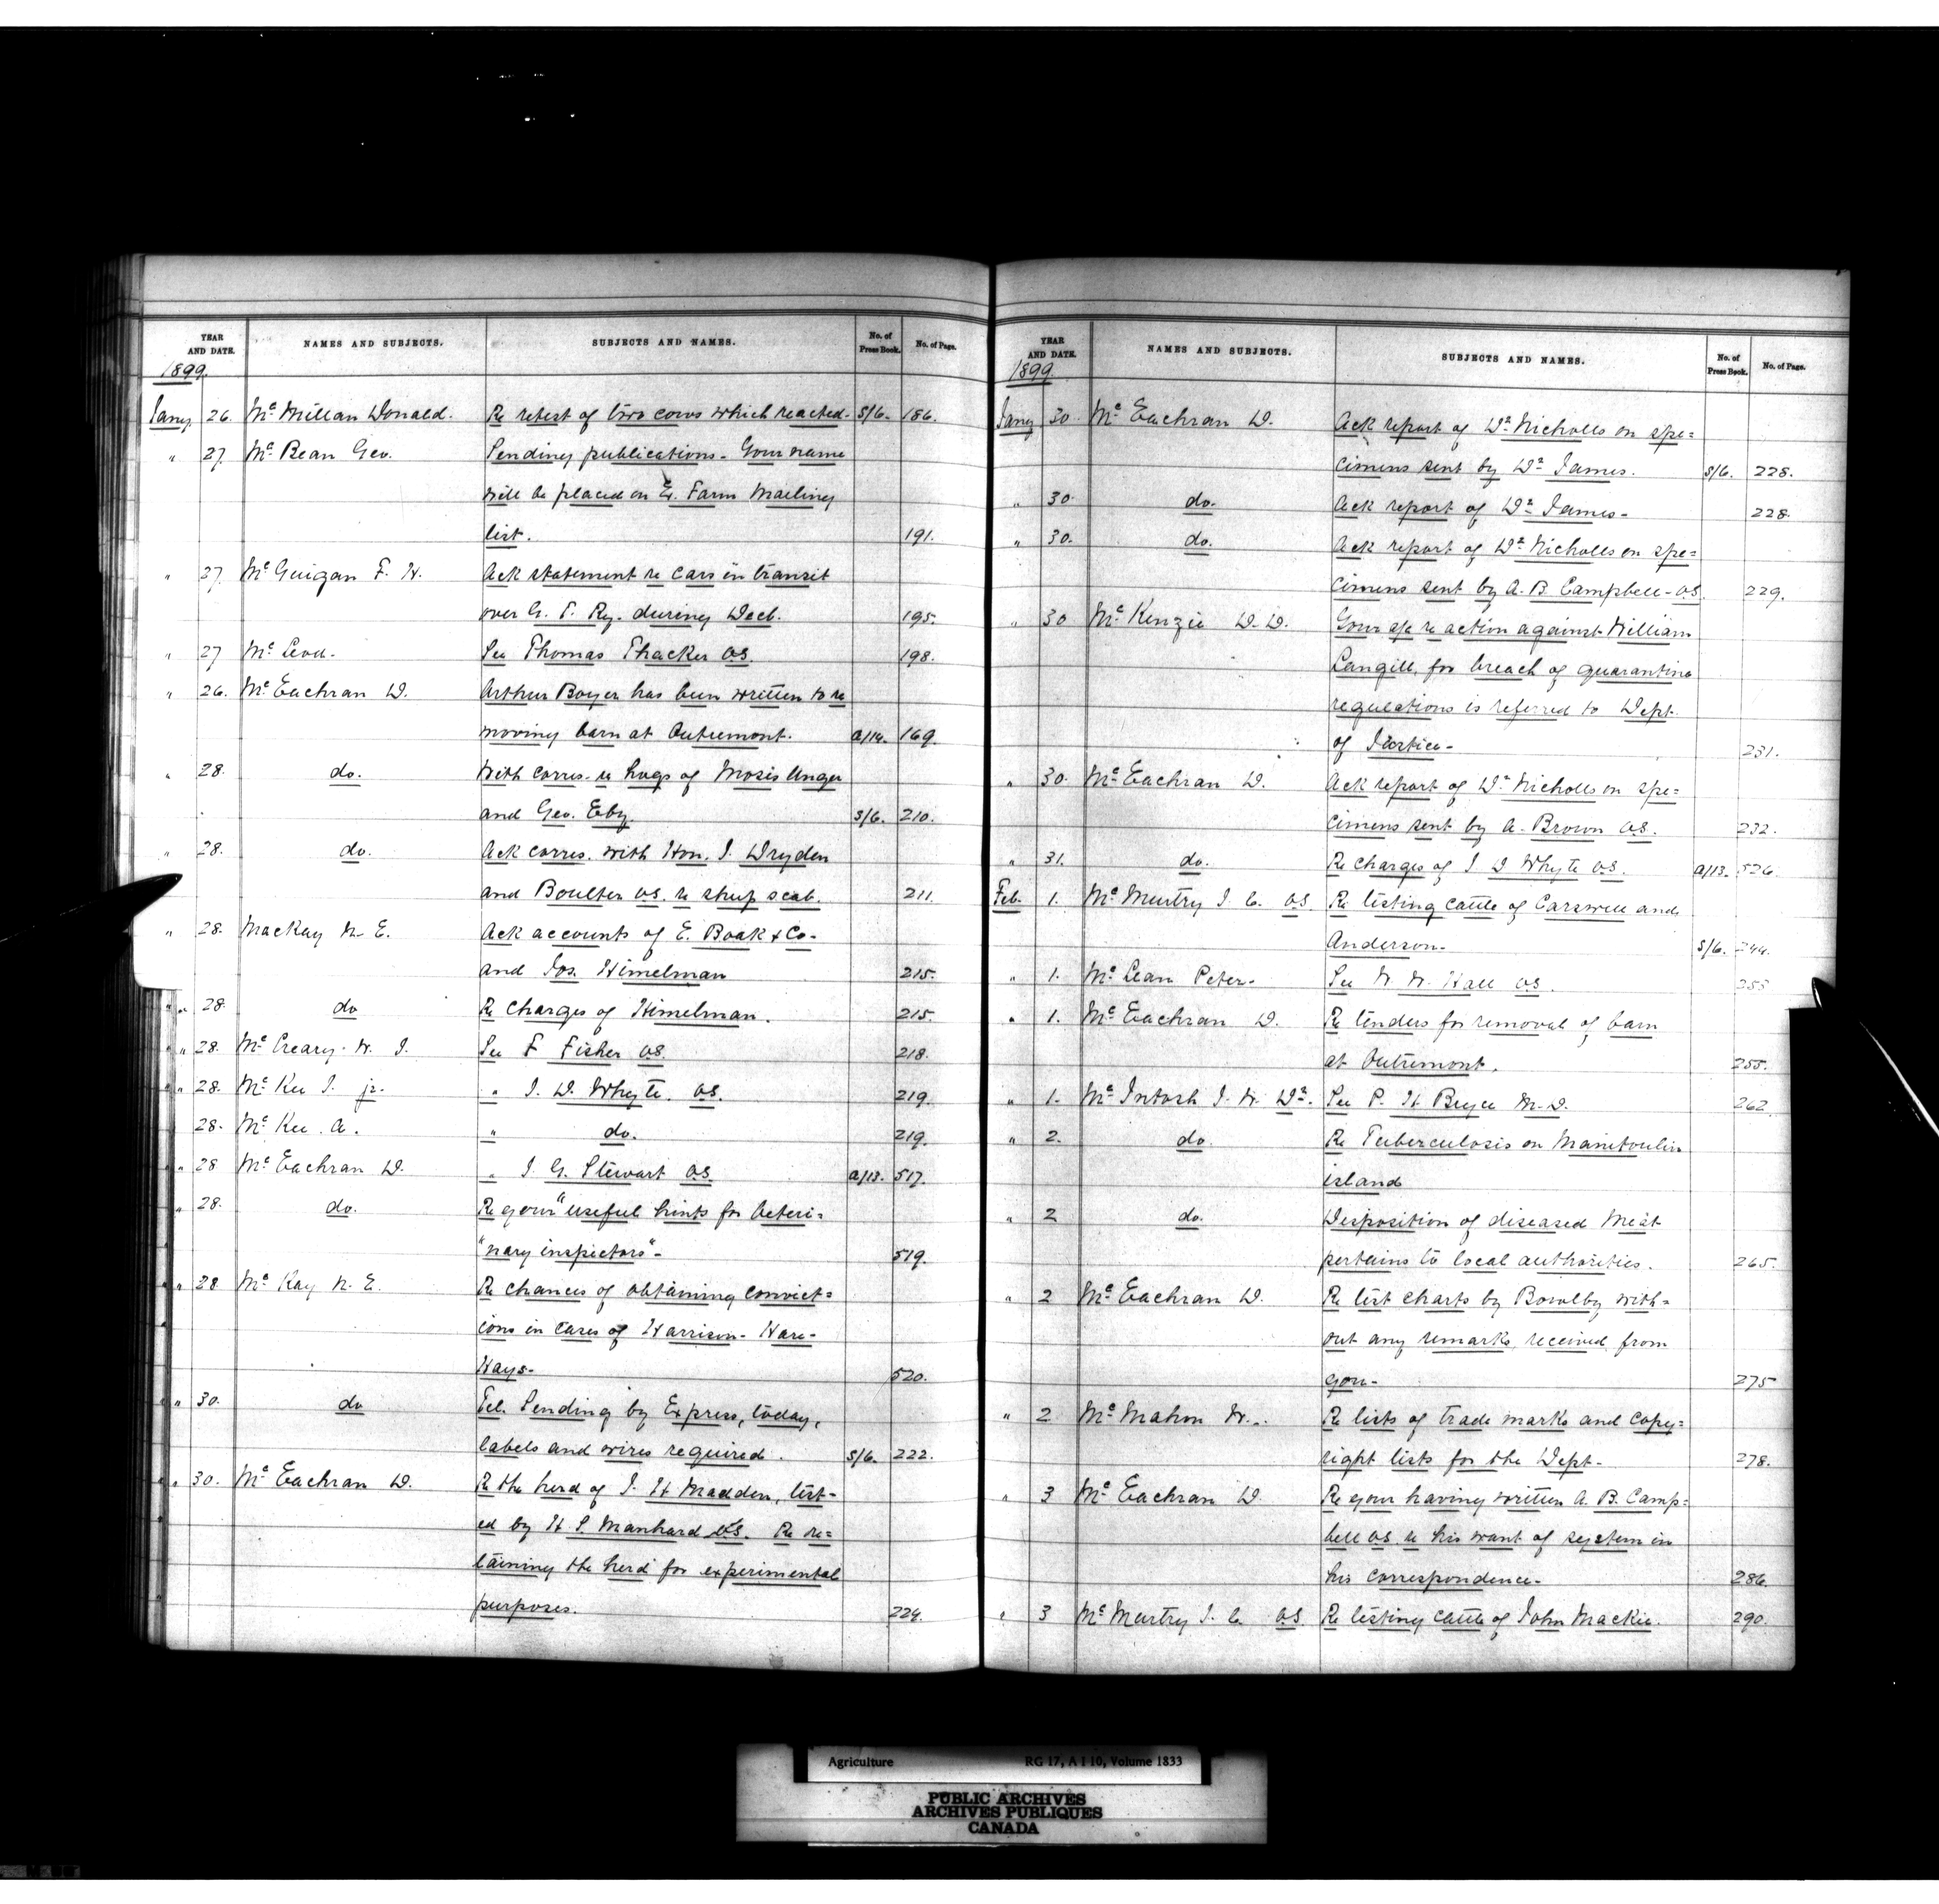 YEAR AND DATE. NAMES AND SUBJECTS. SUBJECTS AND NAMES. No. of Press Book. No. of Page.
1899.
Jany 26. McMillan Donald. Re retest of two cows which reacted- S/6. 186.
" 27 McBean Geo. Sending publications - Your name
will be placed on Ex. Farm Mailing
list. 191.
" 27 McGuigan F. H. Ack statement re cars in transit
over G. T. Ry. during Decb. 195.
" 27 McLeod- See Thomas Thacker V.S. 198.
" 26. McEachran D. Arthur Boyer has been written to re
moving barn at Outremont. A/14. 169.
" 28. do. With corres. re hogs of Moses Unger
and Geo. Eby. S/6. 210.
" 28. do. Ack corres. with Hon. J. Dryden
and Boulter V.S. re sheep scab. 211.
" 28. MacKay N. E. Ack accounts of E. Boak & Co-
and Jos. Himelman 215.
" 28. do Re charges of Himelman. 215.
" 28. McCreary W. J. See F Fisher V.S. 218.
" 28. McKee J. jr. " J. D. Whyte. V.S. 219.
" 28. McKee A. " do. 219.
" 28 McEachran D. " J. G. Stewart V.S. A/13. 517.
" 28. do. Re your "useful hints for Veteri=
"nary inspectors"- 519.
" 28 McKay N. E. Re chances of obtaining convict=
ions in cases of Harrison- Hare-
Hays- 520.
" 30. do Tel. Sending by Express, today,
labels and wires required. S/6. 222.
" 30. McEachran D. Re the herd of J. H Madden, test-
ed by H S. Manhard V.S. Re re=
taining the herd for experimental
purposes. 224.
YEAR AND DATE. NAMES AND SUBJECTS. SUBJECTS AND NAMES. No. of Press Book. No. of Page.
1899.
Jany 30. McEachran D. Ack report of Dr Nicholls on spe=
cimens sent by Dr James. S/6. 228.
" 30. do. Ack report of Dr James- 228.
" 30. do. Ack report of Dr Nicholls on spe=
cimens sent by A. B. Campbell- V.S. 229.
" 30 McKenzie D. D. Your a/c re action against William
Langill, for breach of quarantine
regulations is referred to Dept.
of Justice- 231.
" 30. McEachran D. Ack report of Dr Nicholls on spe=
cimens sent by A. Brown V.S. 232.
" 31. do. Re charges of J D Whyte V.S. A/13. 526.
Feb. 1. McMurtry J. C. V.S. Re testing cattle of Carswell and
Anderson- S/6. 244.
" 1. McLean Peter- See W. W. Hall V.S. 255
" 1. McEachran D. Re tenders for removal of barn
at Outremont. 255.
" 1. McIntosh J. W. Dr. See P. H Bryce M.D. 262.
" 2. do. Re Tuberculosis on Manitoulin
island
" 2 do. Disposition of diseased meat
pertains to local authorities. 265.
" 2 McEachran D. Re test charts by Bowlby with=
out any remarks, received from
you- 275
" 2 McMahon W. Re lists of trade marks and copy=
right lists for the Dept- 278.
" 3 McEachran D. Re your having written A. B. Camp=
bell V.S. re his want of system in
his correspondence- 286.
" 3 McMurtry J. C. V.S. Re testing cattle of John Mackie. 290.
Agriculture RG 17, A I 10, Volume 1833
PUBLIC ARCHIVES
ARCHIVES PUBLIQUES
CANADA